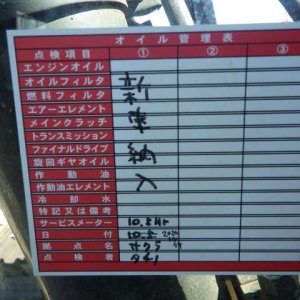 オイル管理表
点検項目 ① ② ③
エンジンオイル
オイルフィルタ
燃料フィルタ
エアーエレメント
メインクラッチ
トランスミッション
ファイナルドライブ
旋回ギヤオイル
作動油
作動油エレメント
冷却水
特記又は備考
サービスメーター 10.5Hr
日付
拠点名
点検者
新車納入